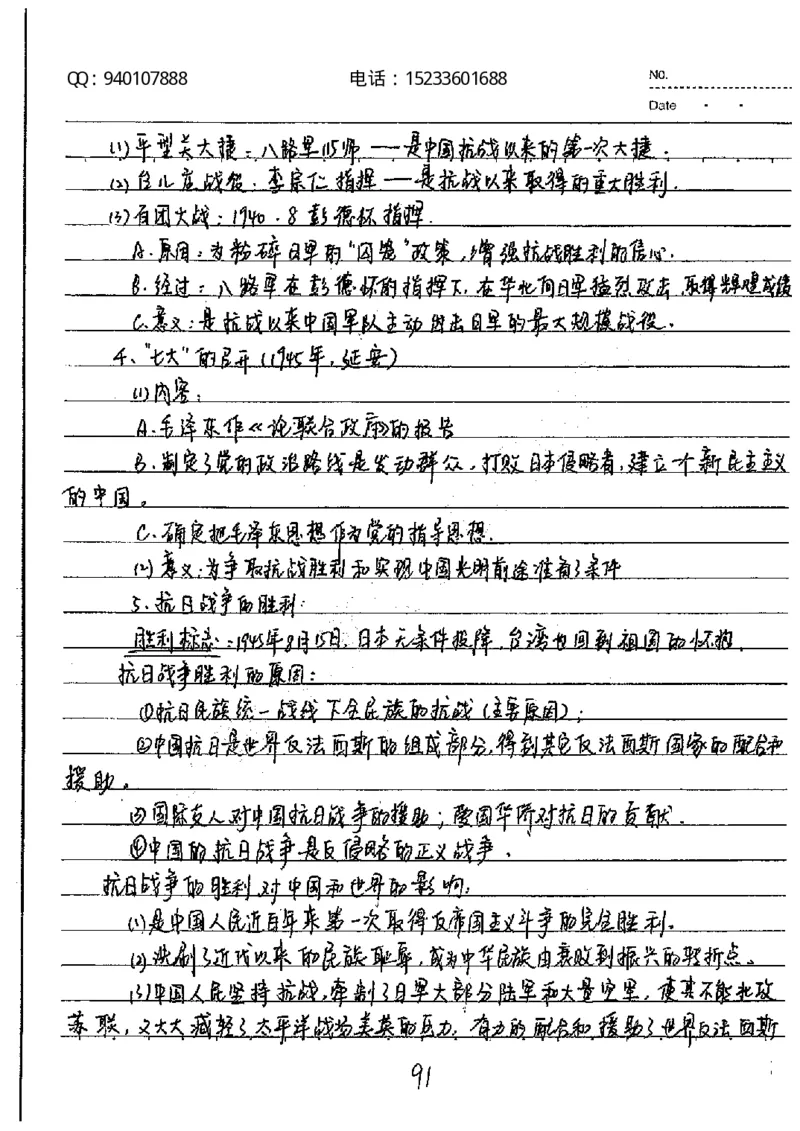 QQ：940107888 电话：15233601688 No.
Date · ·
(1)平型关大捷：八路军115师——是中国抗战以来的第一次大捷；
(2)台儿庄战役：李宗仁指挥——是抗战以来取得的重大胜利.
(3)百团大战：1940.8 彭德怀指挥.
A.原因：为粉碎日军的"囚笼"政策,增强抗战胜利的信心.
B.经过：八路军在彭德怀的指挥下,在华北向日军猛烈攻击,取得辉煌成绩
C.意义：是抗战以来中国军队主动出击日军的最大规模战役.
4、"七大"的召开(1945年,延安)
(1)内容：
A.毛泽东作《论联合政府》的报告
B.制定了党的政治路线是发动群众,打败日本侵略者,建立一个新民主主义
的中国。
C.确定把毛泽东思想作为党的指导思想.
(2)意义:为争取抗战胜利和实现中国光明前途准备了条件
5、抗日战争的胜利:
胜利标志：1945年8月15日,日本无条件投降,台湾也回到祖国的怀抱.
抗日战争胜利的原因：
①抗日民族统一战线下全民族的抗战(主要原因)；
②中国抗日是世界反法西斯的组成部分,得到其它反法西斯国家的配合和
援助。
③国际友人对中国抗日战争的援助；爱国华侨对抗日的贡献.
④中国的抗日战争是反侵略的正义战争.
抗日战争的胜利对中国和世界的影响：
(1)是中国人民近百年来第一次取得反帝国主义斗争的完全胜利。
(2)洗刷了近代以来的民族耻辱,成为中华民族由衰败到振兴的转折点。
(3)中国人民坚持抗战,牵制了日军大部分陆军和大量空军,使其不能北攻
苏联,又大大减轻了太平洋战场美英的压力,有力的配合和援助了世界反法西斯
91